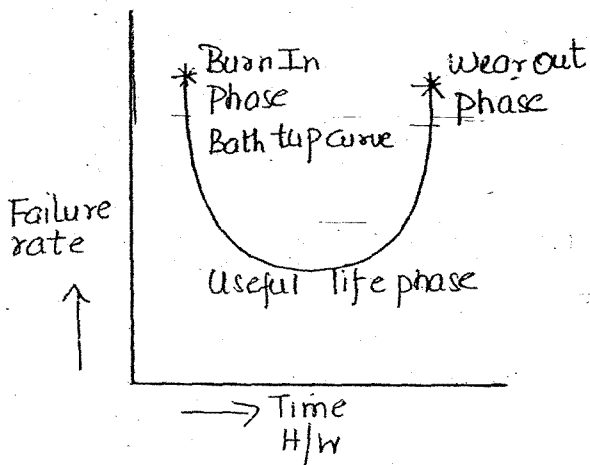 Burn In
Phase
Bath tup curve
Wear out
phase
Failure
rate
Useful life phase
Time
H/W